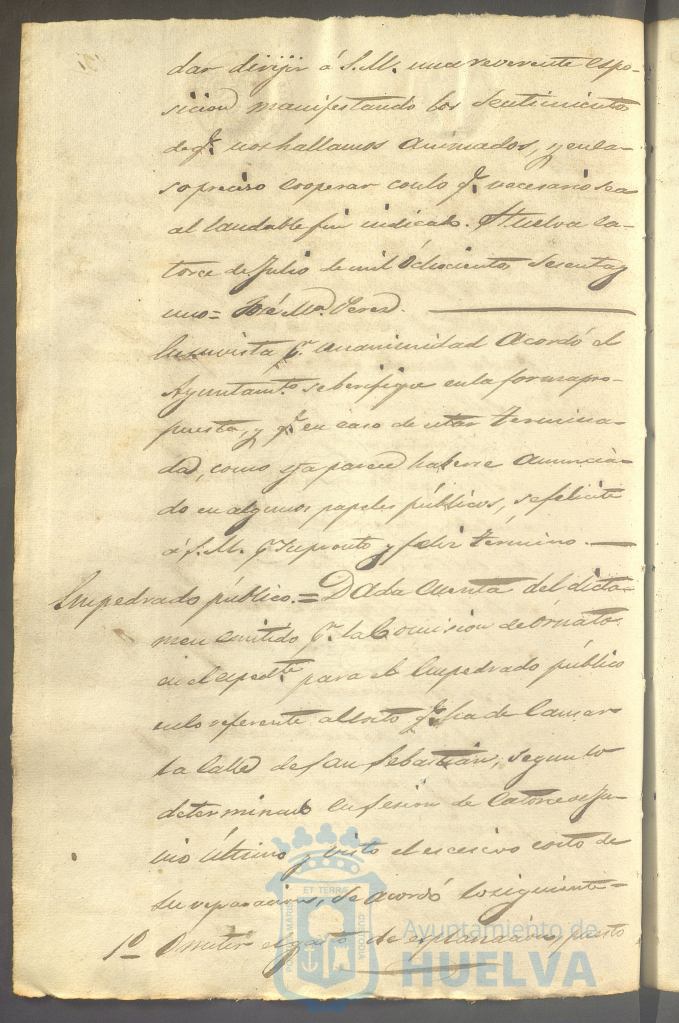 dar dirijir á S.M. una reverente espo-
sicion manifestando los sentimientos
de q.e nos hallamos animados, y en ca-
so preciso cooperar con lo q.e necesario sea
al laudable fin indicado. Huelva ca-
torce de Julio de mil ochocientos sesenta y
uno = José M.a Perez.
En su vista p.r unanimidad acordó el
Ayuntam.to se berifique en la forma pro-
puesta, y q.e en caso de estar termina-
da, como ya parece haberse anuncia-
do en algunos papeles públicos, se felicite
á S.M. p.r su pronto y feliz término.
Empedrado público. = Dada cuenta del dicta-
men emitido p.r la Comision de Ornato
en el esped.te para el Empedrado público
en lo referente al costo q.e ha de causar
la calle de San Sebastian, segun lo
determinado en sesion de catorce de Ju-
nio último y visto el escesivo costo de
su reparacion, se acordó lo siguiente =
1º Omitir el gasto de esplanacion, puesto
Ayuntamiento de
HUELVA